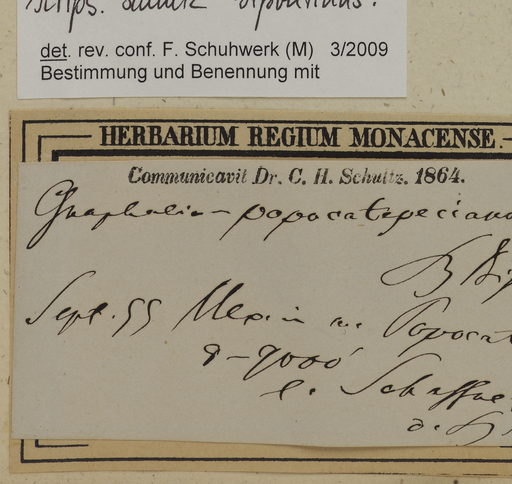 scrips. Schultz Bipontinus.
det. rev. conf. F. Schuhwerk (M) 3/2009
Bestimmung und Benennung mit
HERBARIUM REGIUM MONACENSE.
Communicavit Dr. C. H. Schultz. 1864.
Gnaphalium popocatepecianu
Sept. 55 Mexico Popocat
8-9000'
Schaffne